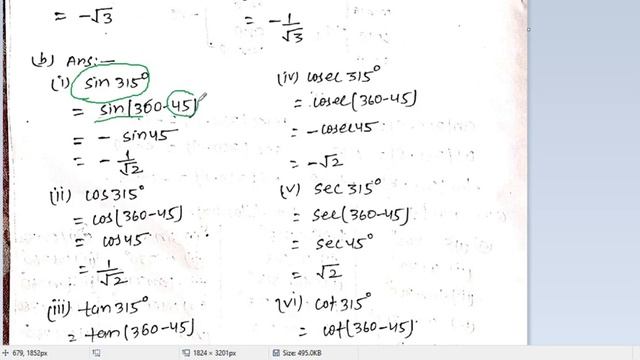 = -√3
= -1/√3
(b) Ans:-
(i) sin 315°
= sin(360-45)
= - sin45
= - 1/√2
(ii) cos315°
= cos(360-45)
= cos45
= 1/√2
(iii) tan315°
= tan(360-45)
(iv) cosec 315°
= cosec(360-45)
= -cosec45
= -√2
(v) sec 315°
= sec(360-45)
= sec45°
= √2
(vi) cot315°
= cot(360-45)
679, 1852px
1824 × 3201px
Size: 495.0KB